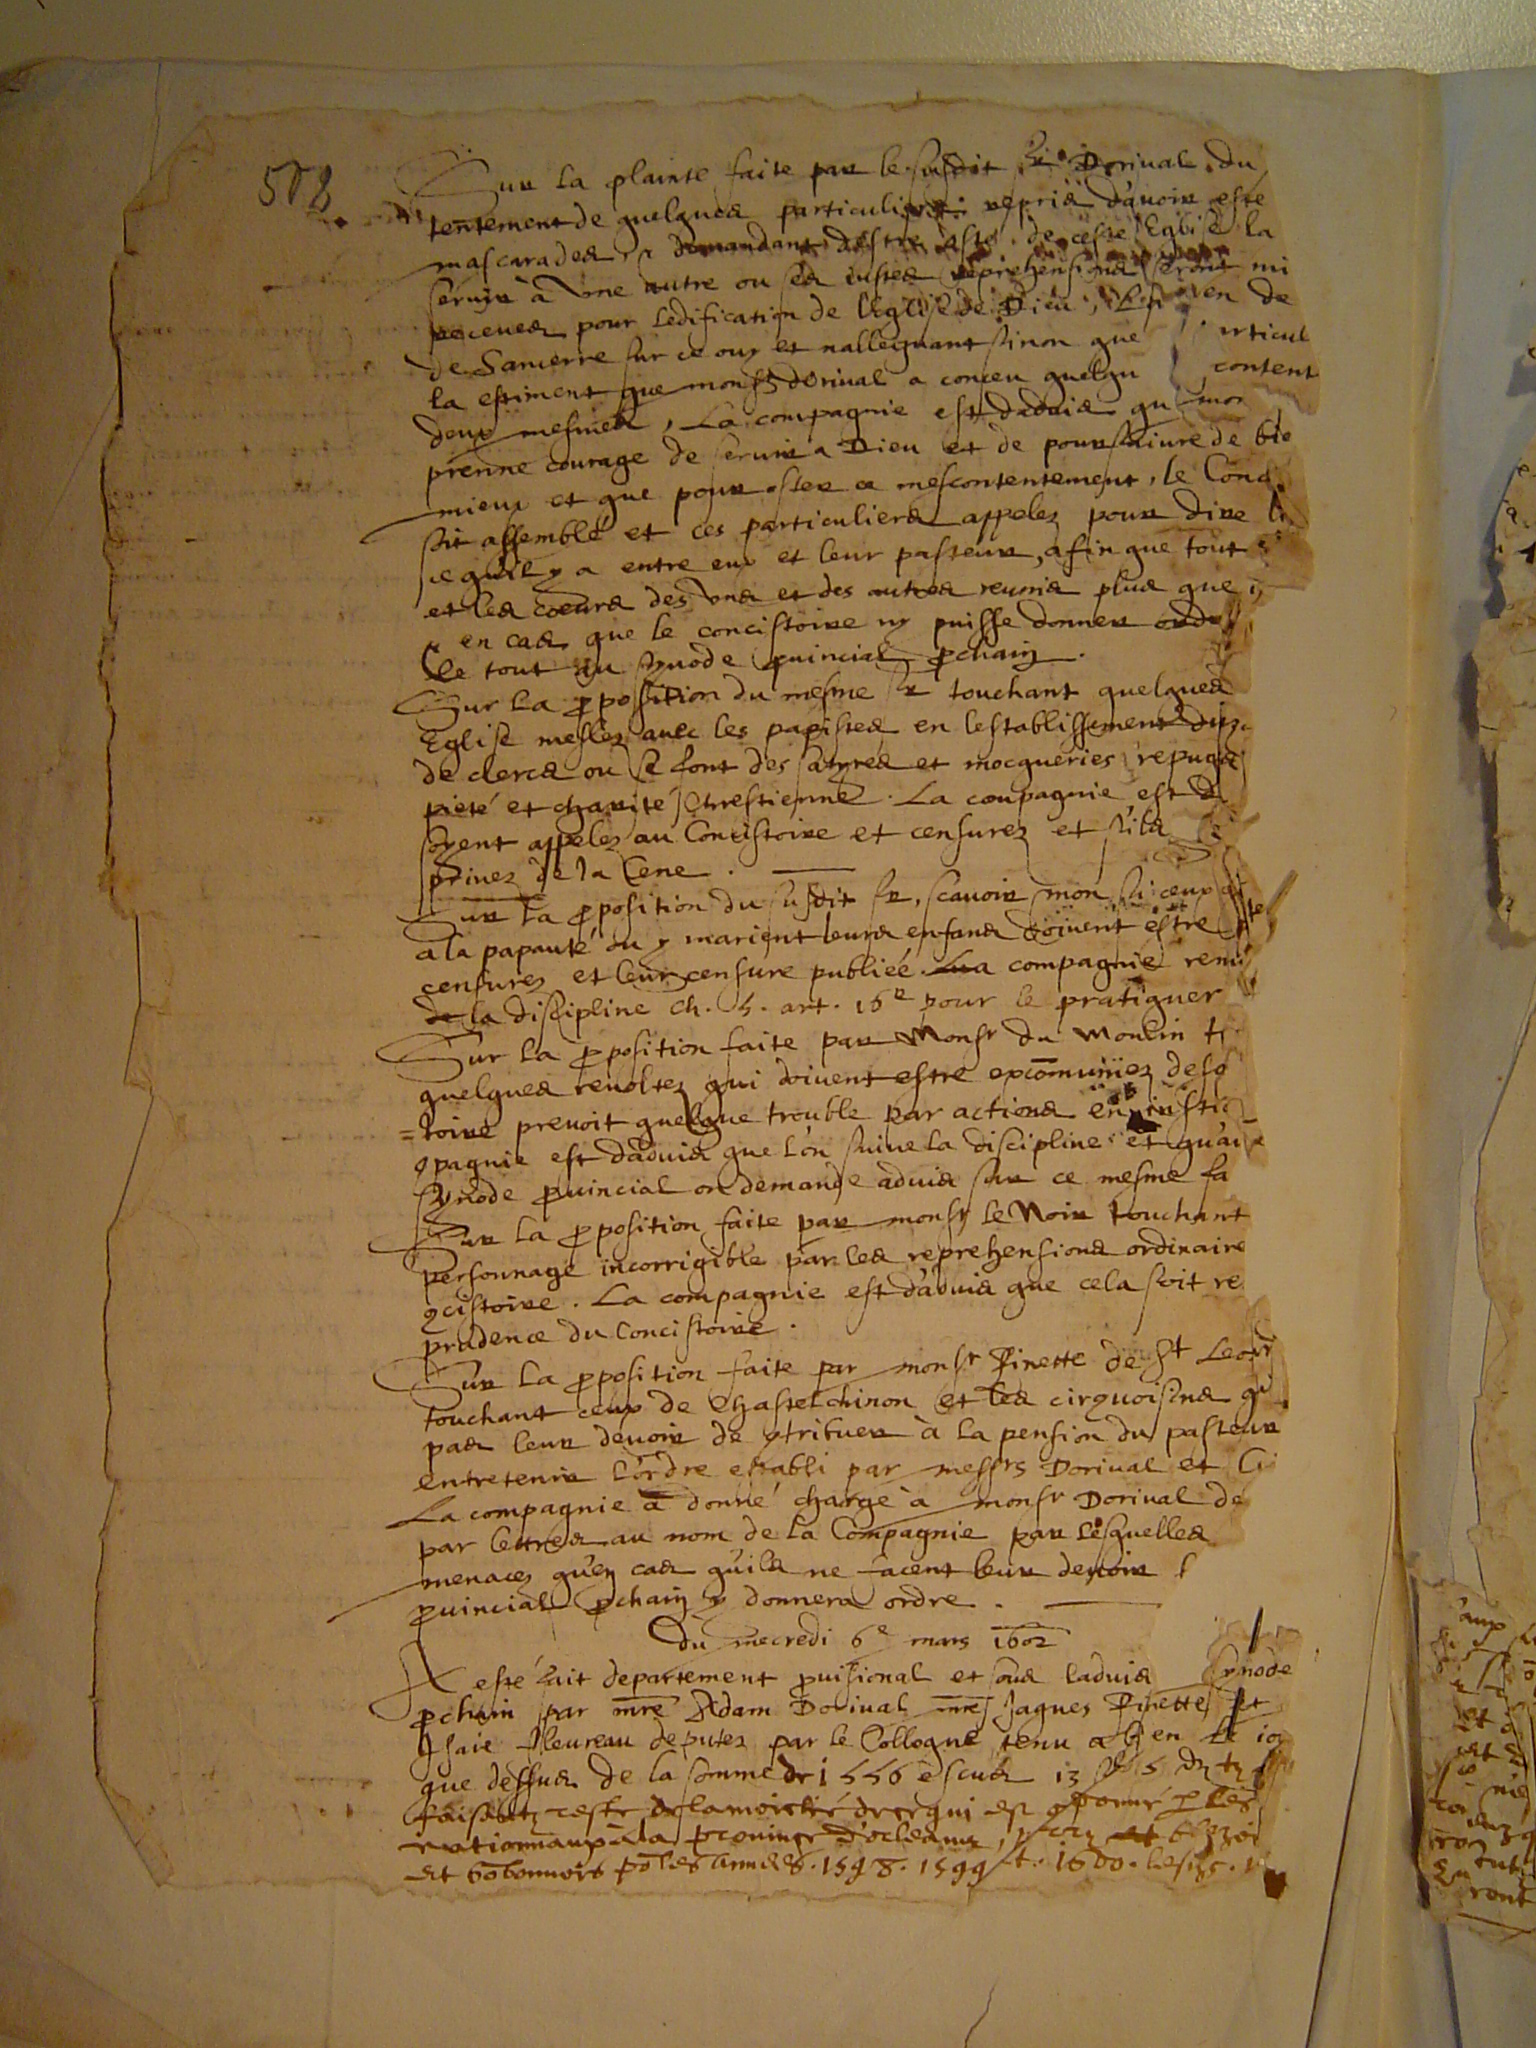 Sur la plainte faite par le susdit Sr Dorival du
tentement de quelques particuliers repris d'avoir esté
mascarades demandant d'estre osté de ceste Eglise la
servir à une autre ou ses iustes reprehensions seront mi
receues pour l'edification de l'Eglise de Dieu, en de
de Sancerre sur ce ouy et n'alleguant sinon que articul
la estiment que monsr dorival a conceu quelqu content
deux mesmes, La compagnie est d'advis qu mon
prenne courage de servir a Dieu et de poursuivre de bie
mieux et que pour oster ce mescontentement, le Conci
soit assemblé et ces particuliers appelez pour dire
ce quil y a entre eux et leur pasteur, afin que tout
et les coeurs des uns et des autres reunis plus que
en cas que le concistoire ny puisse donner ordre
le tout au synode provincial prochain.
Sur la proposition du mesme Sr touchant quelques
Eglise meslez avec les papistes en lestablissement d'un
de clercs ou se font des satyres et mocqueries repug
pieté et charité Chrestienne. La compagnie est d
soyent appelez au Concistoire et censurez et s'ils
privez de la Cene.
Sur la proposition du susdit Sr, scavoir mon si ceux
a la papauté ou y marient leurs enfans doivent estre
censurez et leur censure publiée. La compagnie renv
de la discipline ch. 5. art. 16e pour le pratiquer
Sur la proposition faite par Monsr du Moulin
quelques revoltez qui doivent estre excommuniez
=toire prevoit quelque trouble par actions en iustic
compagnie est d'advis que l'on suive la discipline et qu'au
synode provincial on demande advis sur ce mesme fa
Sur la proposition faite par monsr le Noir touchant
personnage incorrigible par les reprehensions ordinaire
concistoire. La compagnie est d'advis que cela soit re
prudence du Concistoire.
Sur la proposition faite par monsr Pinette de St Leon
touchant ceux de Chastelchinon et les cirquoisins qu
pas leur devoir de contribuer à la pension du pasteur
entretenir l'ordre establi par messrs Dorival et
La compagnie a donné charge à monsr Dorival de
par lettres au nom de la Compagnie par lesquelles
menacez qu'en cas qu'ils ne facent leur devoir
provincial prochain y donnera ordre.
Du mecredi 6e mars 1602
A esté fait departement provisional et sous l'advis Synode
prochain par mre Adam Dorival mre Jaques Pinette et
Isaie Fleureau deputez par le Colloque tenu en le io
que dessus de la somme de 1556 escus 13 s 5 d
faisant reste de la moictié de ce qui est ordonné par les
nationnaux a la province d'orleans, et
et bobonnois po les annees. 1598. 1599 et. 1600.